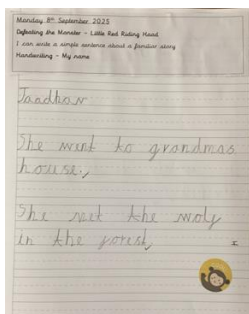 Monday 8th September 2025
Defeating the Monster - Little Red Riding Hood
I can write a simple sentence about a familiar story
Handwriting - My name
Jaadhav
She went to grandmas
house.
She met the wolf
in the forest